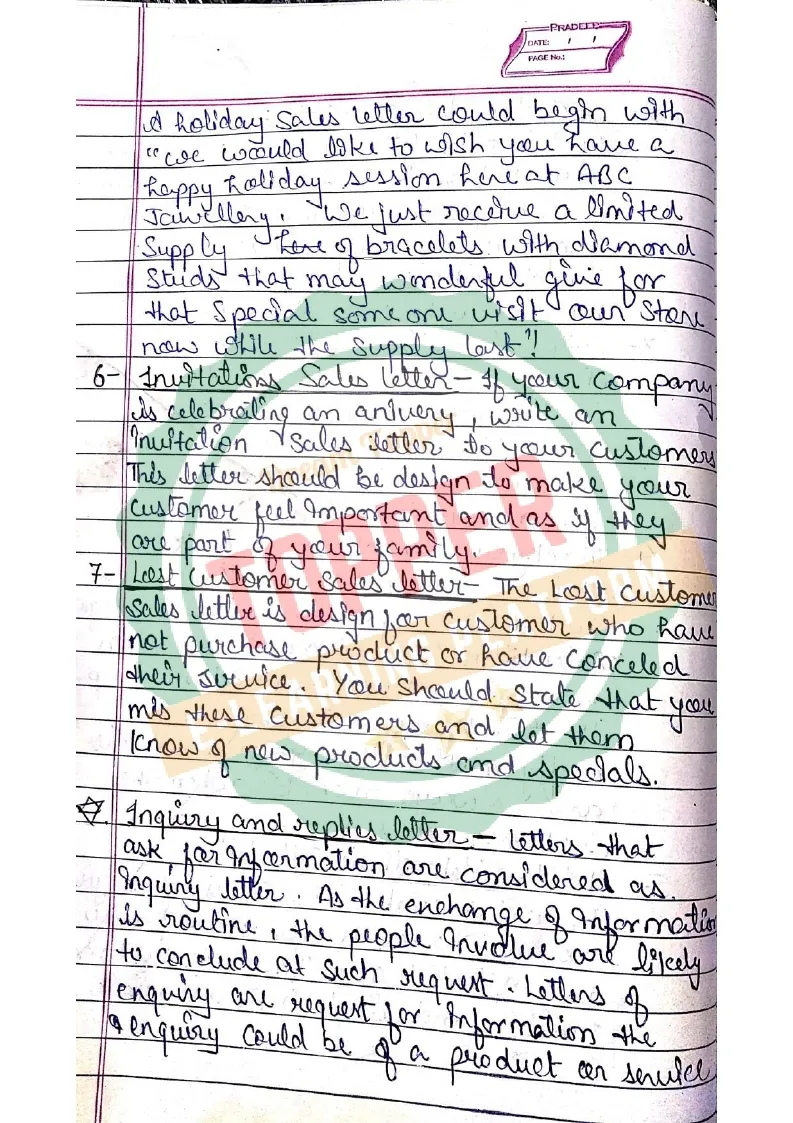 PRADEEP
DATE: / /
PAGE No.:
A holiday sales letter could begin with
"we would like to wish you have a
happy holiday session here at ABC
Jawellery. We just receive a limited
Supply here of bracelets with diamond
studs that may wonderful give for
that special some one visit our store
now while the supply last"!
6- Invitations Sales letter - If your company
is celebrating an anivery, write an
invitation sales letter to your customers
This letter should be design to make your
customer feel important and as if they
are part of your family.
7- Lost customer sales letter - The Lost customer
sales letter is design for customer who have
not purchase product or have conceled
their service. You should state that you
mis these customers and let them
know of new products and specials.
Inquiry and replies letter - letters that
ask for information are considered as
inquiry letter. As the enchange of information
is routine, the people involve are likely
to conclude at such request. Letters of
enquiry are request for information the
enquiry could be of a product or service
TOPPER
LEARNING PLATFORM